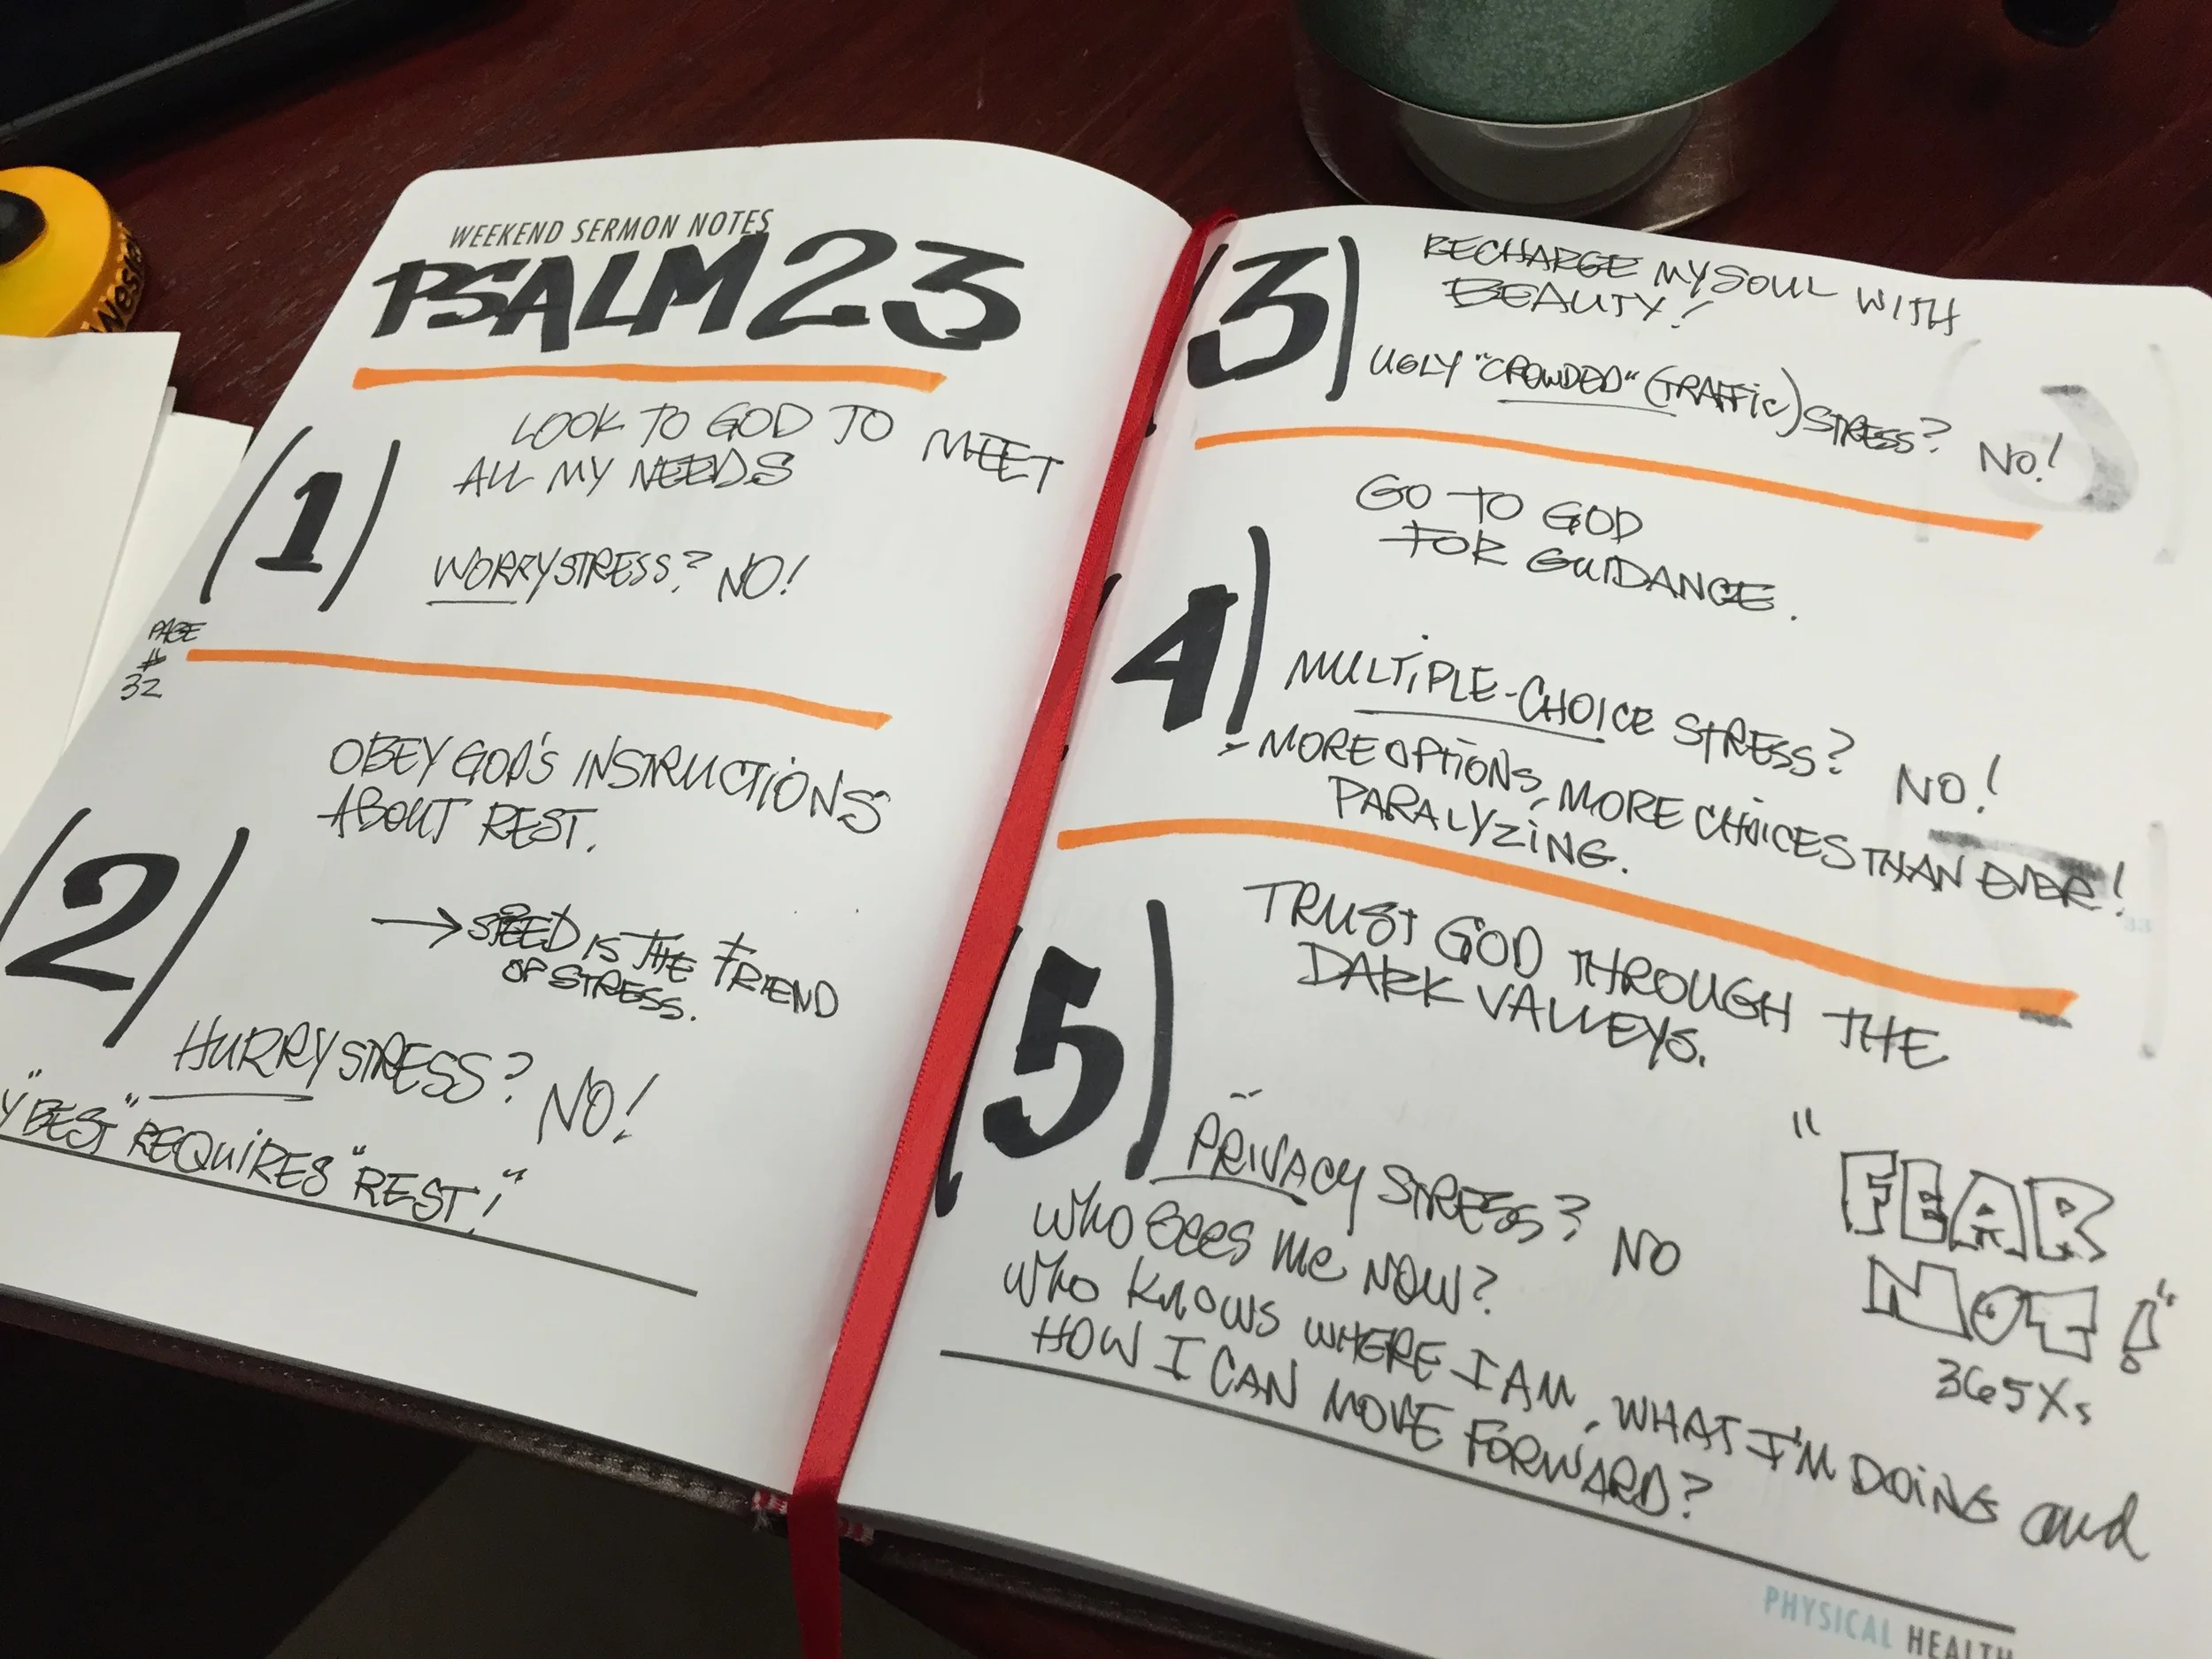 WEEKEND SERMON NOTES
PSALM 23
(1)
LOOK TO GOD TO MEET
ALL MY NEEDS
WORRY STRESS? NO!
PAGE
#
32
(2)
OBEY GOD'S INSTRUCTIONS
ABOUT REST.
→ SPEED IS THE FRIEND
OF STRESS.
HURRY STRESS? NO!
Y BEST" REQUIRES "REST!"
(3)
RECHARGE MY SOUL WITH
BEAUTY!
UGLY "CROWDED" (TRAFFIC) STRESS? NO!
(4)
GO TO GOD
FOR GUIDANCE.
MULTIPLE-CHOICE STRESS? NO!
- MORE OPTIONS, MORE CHOICES THAN EVER!
PARALYZING.
33
(5)
TRUST GOD THROUGH THE
DARK VALLEYS.
PRIVACY STRESS? NO
WHO SEES ME NOW?
WHO KNOWS WHERE I AM, WHAT I'M DOING and
HOW I CAN MOVE FORWARD?
"FEAR
NOT!"
365Xs
PHYSICAL HEALTH